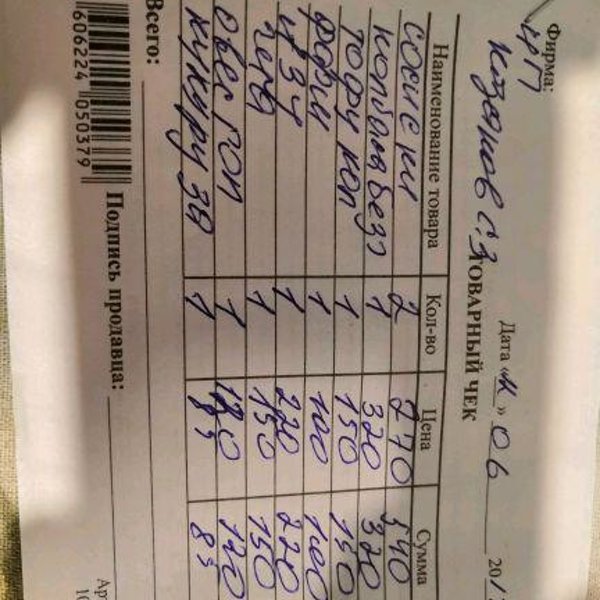 Фирма: ИП Казаков С.З
Дата «11» 06 20
ТОВАРНЫЙ ЧЕК
Наименование товара Кол-во Цена Сумма
сосиски 2 270 540
колбаса безо 1 320 320
тофу коп 1 150 150
1 100 100
1 220 220
1 150 150
овес 1 120 120
кукуруза 1 85 85
Всего:
Подпись продавца:
606224 050379